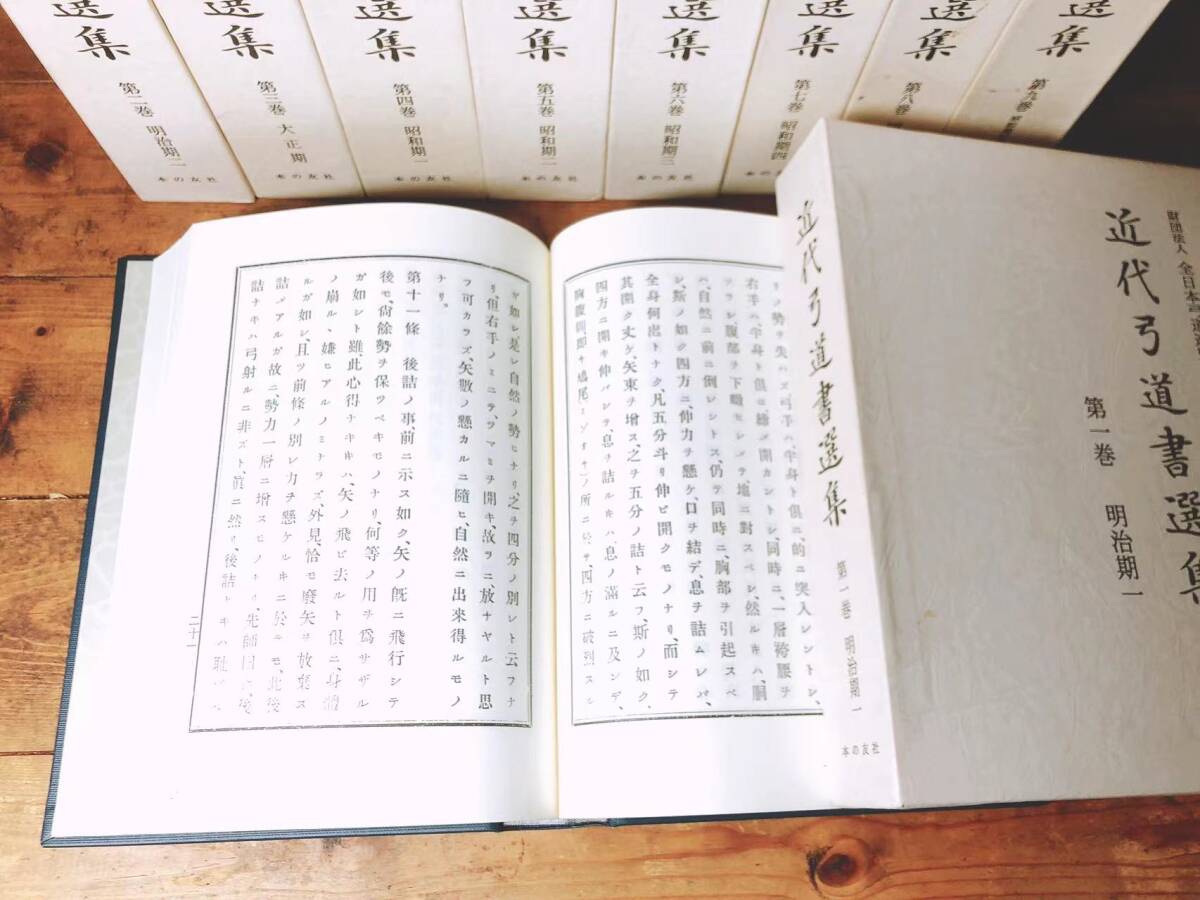 選集
第二巻 明治期二
本の友社
選集
第三巻 大正期
本の友社
選集
第四巻 昭和期一
本の友社
選集
第五巻 昭和期二
本の友社
選集
第六巻 昭和期三
本の友社
選集
第七巻 昭和期四
選集
第八巻
選集
第九巻
財団法人 全日本弓道連
近代弓道書選集
第一巻 明治期一
近代弓道書選集
第一巻 明治期一
本の友社
リノ勢ヲ失ハズ弓手ハ、半身ト俱ニ、的ニ突入レントシ、
右手ハ、半身ト俱ニ捻ヂ開カントシ、同時ニ、一層袴腰ヲ
フラシ、腹部ヲ下
ハ、自然ニ前ニ倒レントス、仍テ同時ニ、胸部ヲ引起スベ
シ、斯ノ如ク四方ニ、伸力ヲ懸ケ、口ヲ結デ、息ヲ詰ムレバ、
全身何出トナク、凡五分斗リ伸ビ開クモノナリ、而シテ
其開ク丈ケ、矢束ヲ增ス、之ヲ五分ノ詰ト云フ、斯ノ如ク、
四方ニ開キ伸バシテ、息ヲ詰ルキハ、息ノ滿ルニ及ンデ、
胸腹間、即チ鳩尾
ノ所ニ於テ、四方ニ破烈スル
ガ如シ、是レ自然ノ勢ヒナリ、之ヲ四分ノ別レト云フナ
リ、但右手ノミニテ、ツマミヲ開キ、故ラニ、放ナヤルト思
フ可カラズ、矢數ノ懸カルニ隨ヒ、自然ニ出來得ルモノ
ナリ。
第十一條 後詰ノ事、前ニ示ス如ク、矢ノ既ニ飛行シテ
後モ、尙餘勢ヲ保ツベキモノナリ、何等ノ用ヲ爲サザル
ガ如シト雖、此心得ナキキハ、矢ノ飛ビ去ルト俱ニ、身體
ノ崩ル、嫌ヒアルノミナラズ、外見、恰モ廢矢ヲ放棄ス
ルガ如シ、且ツ前條ノ別レ力ヲ懸ケルキニ於テモ、此後
詰メアルガ故ニ、勢力一層ニ增スモノナリ、先師曰ク、後
詰ナキハ弓射ルニ非ズト、眞ニ然リ、後詰ト
二十一